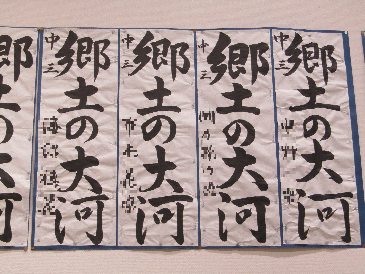 郷土の大河
中三
郷土の大河
中三
郷土の大河
中三
郷土の大河
中三
郷土の大河